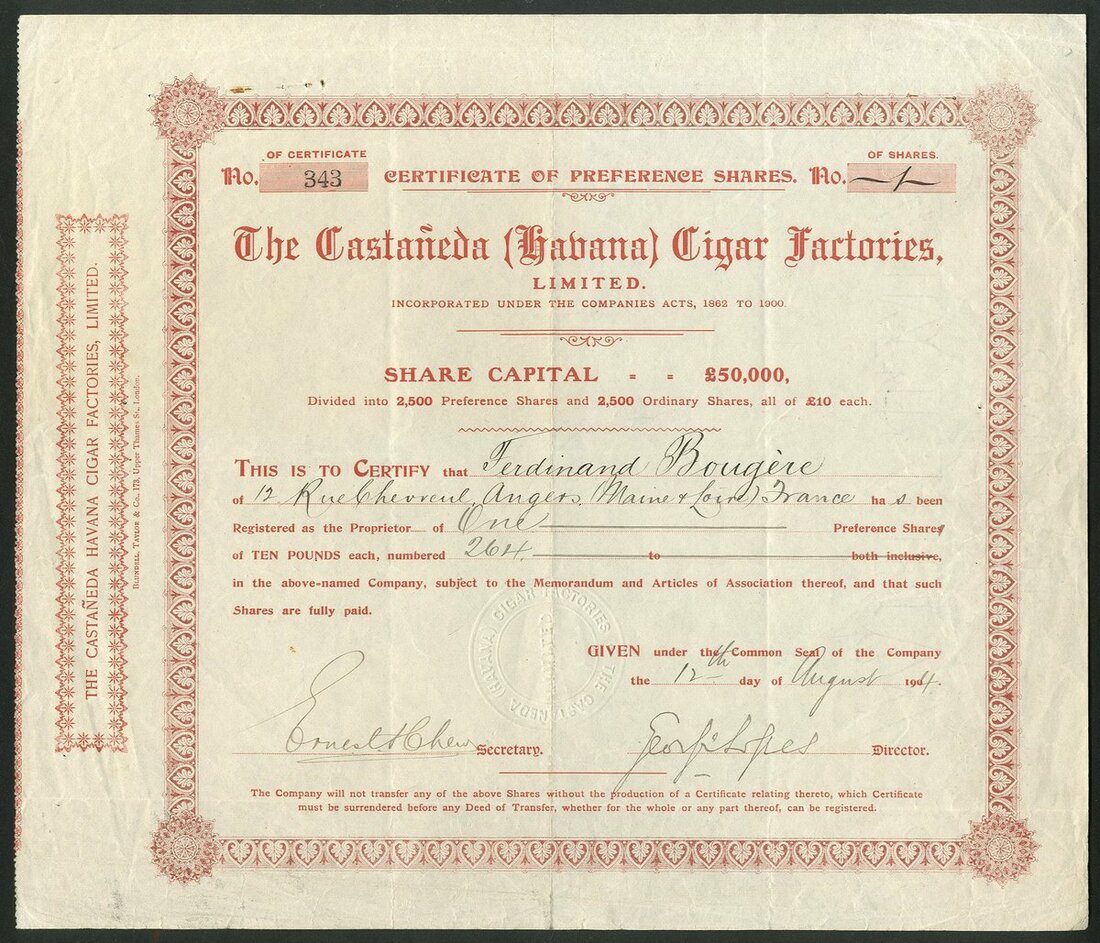 OF CERTIFICATE
OF SHARES.
No. 343 CERTIFICATE OF PREFERENCE SHARES. No. 1
The Castañeda (Havana) Cigar Factories,
LIMITED.
INCORPORATED UNDER THE COMPANIES ACTS, 1862 TO 1900.
SHARE CAPITAL = = £50,000,
Divided into 2,500 Preference Shares and 2,500 Ordinary Shares, all of £10 each.
THIS IS TO CERTIFY that Ferdinand Bougère
of 12 Rue Chevreul, Angers (Maine & Loire) France has been
Registered as the Proprietor of One Preference Shares
of TEN POUNDS each, numbered 264 to both inclusive,
in the above-named Company, subject to the Memorandum and Articles of Association thereof, and that such
Shares are fully paid.
GIVEN under the Common Seal of the Company
the 12th day of August 1904.
Ernest Chew Secretary. Director.
The Company will not transfer any of the above Shares without the production of a Certificate relating thereto, which Certificate
must be surrendered before any Deed of Transfer, whether for the whole or any part thereof, can be registered.
THE CASTAÑEDA HAVANA CIGAR FACTORIES, LIMITED.
BLUNDELL, TAYLOR & CO., 173, Upper Thames St., London.
THE CASTAÑEDA HAVANA CIGAR FACTORIES
LIMITED